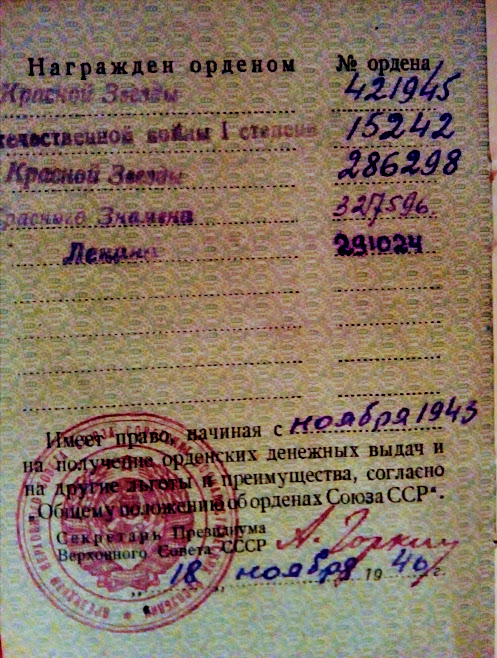 Награжден орденом № ордена
Красной Звезды 421945
течественной войны I степени 15242
Красной Звезды 286298
расного Знамени 327596
Ленина 291024
Имеет право, начиная с ноября 1943
на получение орденских денежных выдач и
на другие льготы и преимущества, согласно
„Общему положению об орденах Союза ССР“.
Секретарь Президиума
Верховного Совета СССР А. Горкин
„18„ ноября 1946 г.